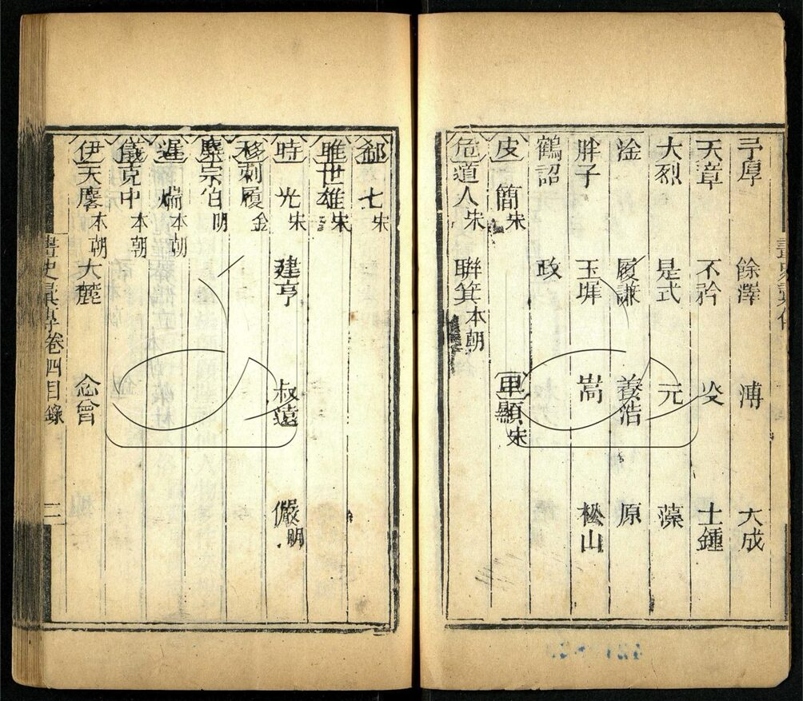 予厚 餘澤 溥 大成
天章 不矜 文 士鍾
大烈 是式 元 藻
淦 履謙 養浩 原
胖子 玉墀 嵩 松山
鶴詔 政
皮 簡宋 卑顯宋
危道人宋 聨箕本朝
郗 七宋
雎世雄宋
時 光宋 建亨 叔遠 儼明
移剌履金
麋宗伯明
遲 煓本朝
儀克中本朝
伊天麐本朝 大麓 念曾
畫史彙傳卷四目錄 二